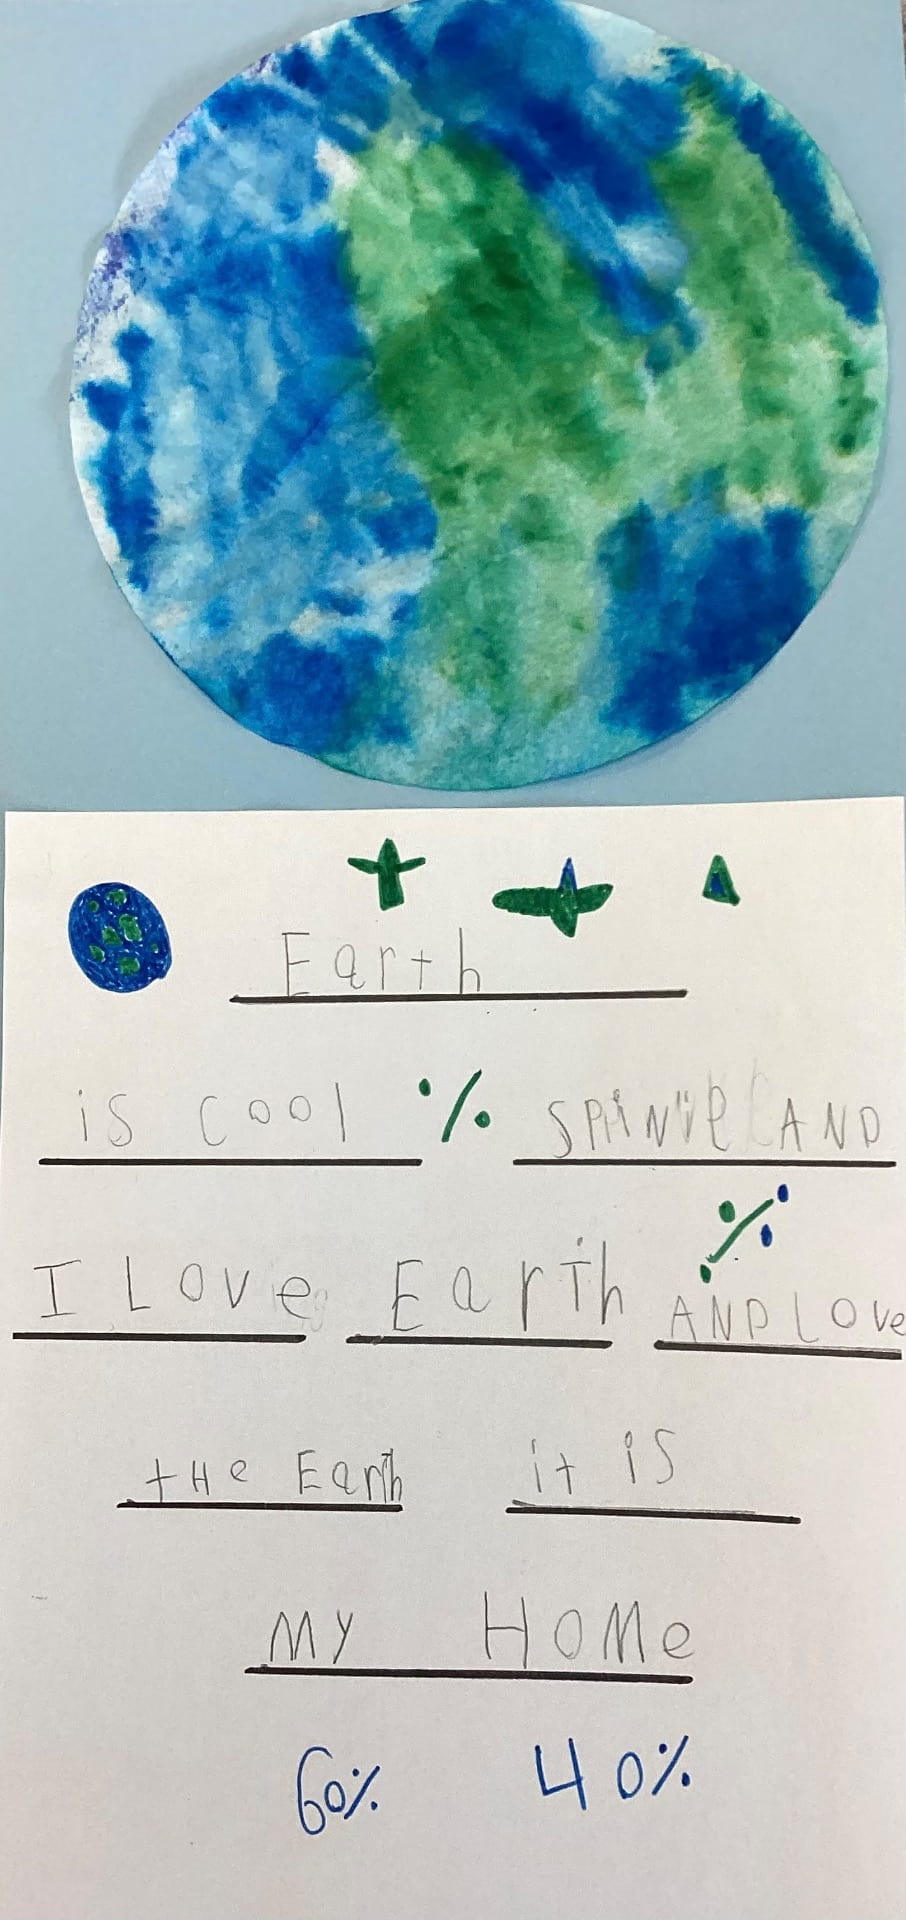 Earth
is cool % SPINE AND
I Love Earth % AND LOve
tHe Earth it is
MY HOMe
60% 40%